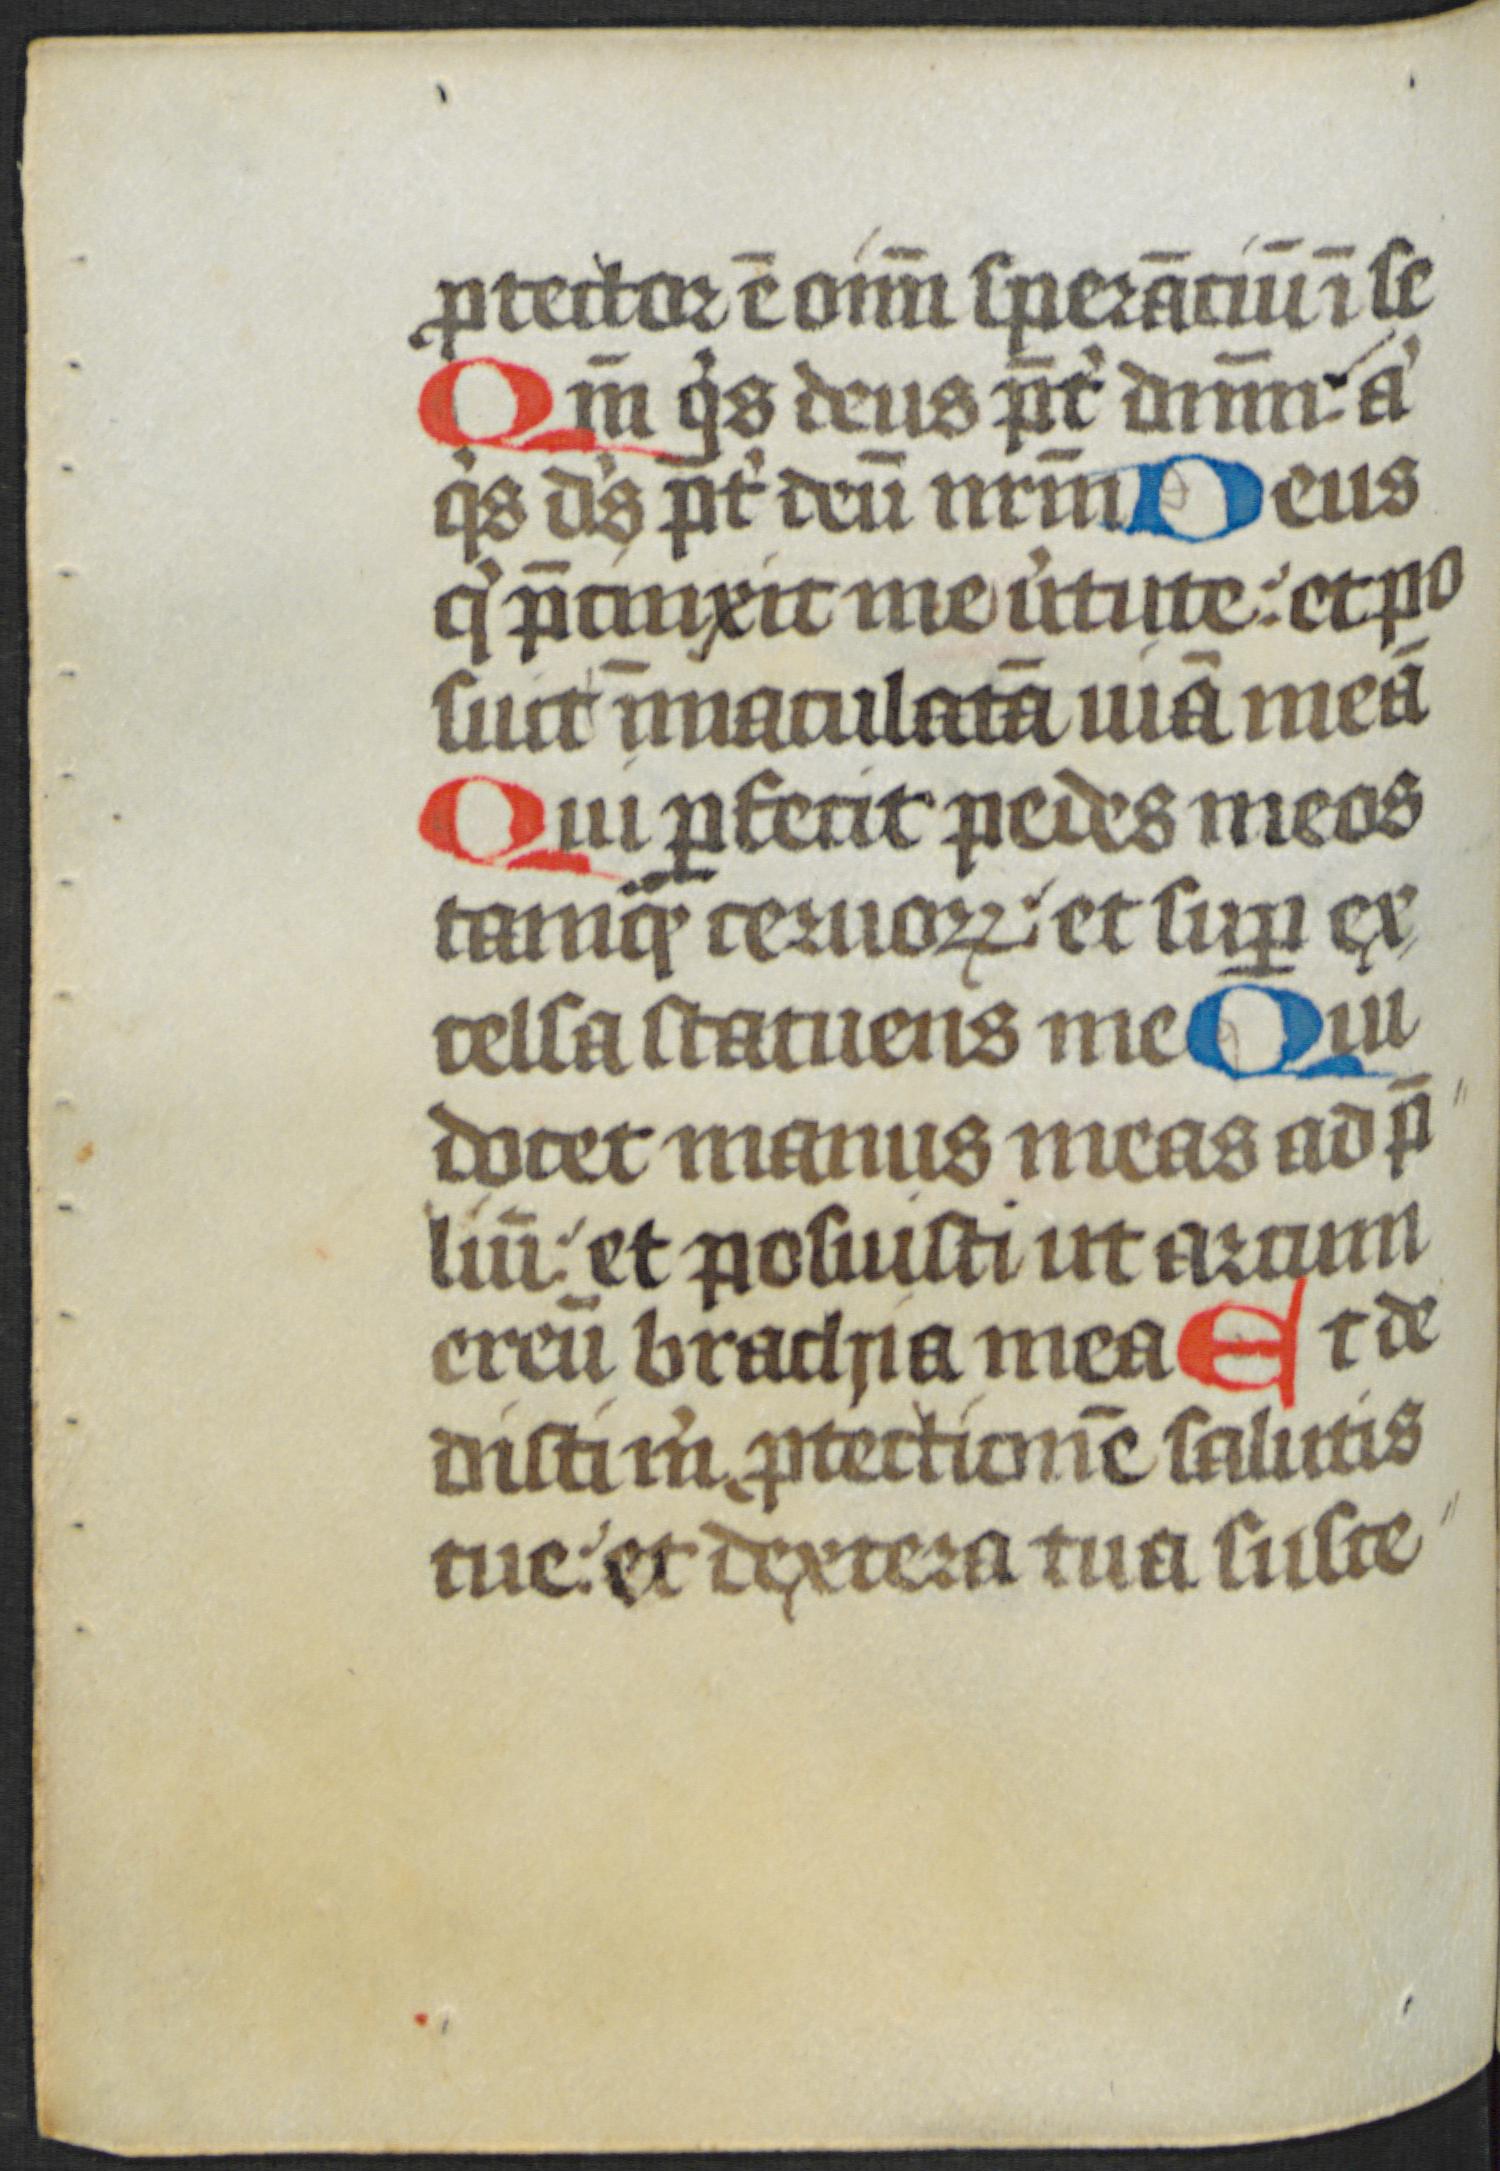 ꝓtector ē om̄i sperāciū ī se
Qm̄ qͥs deus p̄tˀ dnm̄: aˀ
qͥs dˀs p̄tˀ deū nr̄m Deus
qͥ p̄cinxit me uͥtute: et po
suit īmaculatā uiā meā
Qui ꝑfecit pedes meos
tamq̄ ceruoꝝ: et suꝑ ex
celsa statuens me Qui
docet manus meas ad p̄
liū: et posuisti ut arcum
ereū brachia mea Et de
disti mͥ ꝓtectionē salutis
tue: et dextera tua susce